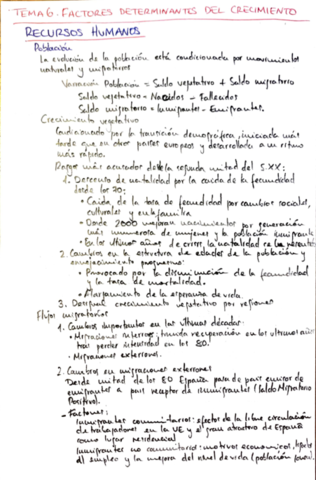 TEMA 6. FACTORES DETERMINANTES DEL CRECIMIENTO
RECURSOS HUMANOS
Población
La evolución de la población está condicionada por movimientos
naturales y migratorios
Variación Población = Saldo vegetativo + Saldo migratorio
Saldo vegetativo = Nacidos - Fallecidos
Saldo migratorio = Inmigrantes - Emigrantes.
Crecimiento vegetativo
Condicionado por la transición demográfica, iniciada más
tarde que en otros países europeos y desarrollada a un ritmo
más rápido.
Rasgos más acusados desde la segunda mitad del S.XX:
1. Descenso de natalidad por la caída de la fecundidad
desde los 70:
• Caída de la tasa de fecundidad por cambios sociales,
culturales y en la familia
• Desde 2000 mejoran nacimientos por generación
más numerosa de mujeres y la población inmigrante
• En los últimos años de crisis, la natalidad se ha
2. Cambios en la estructura de edades de la población y
envejecimiento
• Provocado por la disminución de la fecundidad
y la tasa de mortalidad.
• Alargamiento de la esperanza de vida.
3. Desigual crecimiento vegetativo por regiones
Flujos migratorios
1. Cambios importantes en las últimas décadas:
• Migraciones internas: tímida recuperación en los últimos años
tras perder intensidad en los 80.
• Migraciones exteriores.
2. Cambios en migraciones exteriores
Desde mitad de los 80 España pasa de país emisor de
emigrantes a país receptor de inmigrantes (Saldo Migratorio
Positivo).
- Factores:
Inmigrantes comunitarios: efectos de la libre circulación
de trabajadores en la UE y el gran atractivo de España
como lugar residencial
Inmigrantes no comunitarios: motivos económicos,
al empleo y la mejora del nivel de vida (población